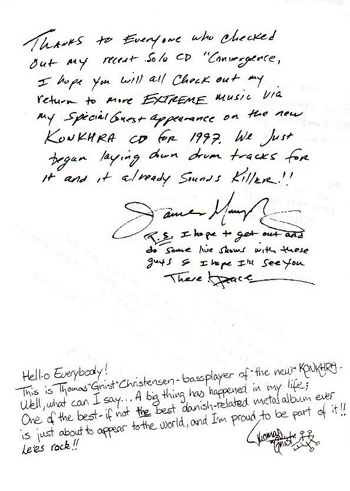 Thanks to Everyone who checked
out my recent Solo CD "Convergence,
I hope you will all check out my
return to more EXTREME music via
my Special Guest appearance on the new
KONKHRA CD for 1997. We Just
began laying down drum tracks for
it and it already Sounds Killer!!
James Murphy
P.S. I hope to get out and
do some live shows with these
guys & I hope I'll see you
There! Peace
Hello Everybody!
This is Thomas "Gnist" Christensen - bassplayer of "the new" KONKHRA.
Well, what can I say... A big thing has happened in my life;
One of the best - if not the best danish-related metal album ever
is just about to appear to the world, and I'm proud to be part of it!!
Let's rock!!
Thomas
Gnist